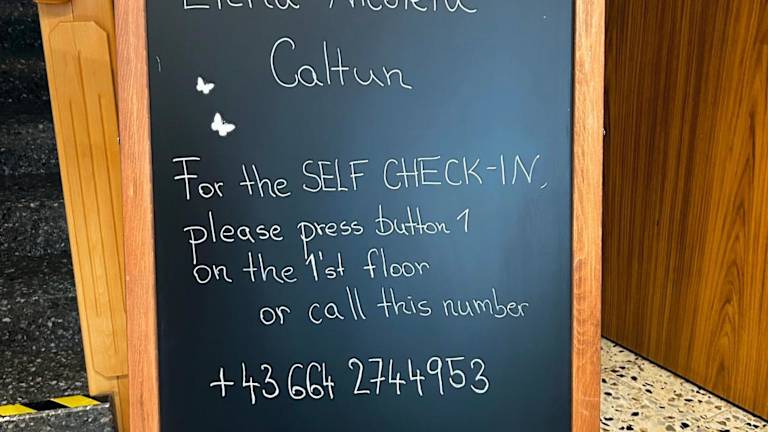 Elena Nicoleta
Caltun
For the SELF CHECK-IN,
please press button 1
on the 1'st floor
or call this number
+43 664 2744953